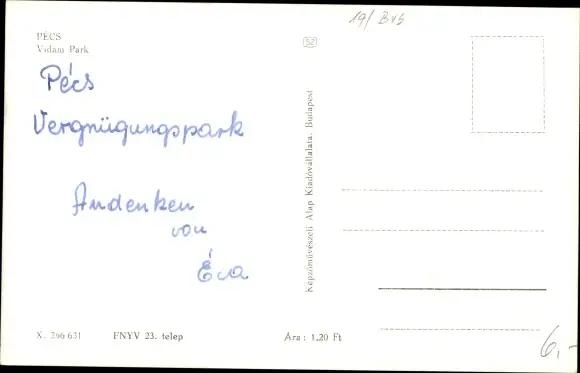 19/ BVS
PÉCS
Vidám Park
Pécs
Vergnügungspark
Andenken
von
Éva
SZ
Képzőművészeti Alap Kiadóvállalata, Budapest
X. 296 631 FNYV 23. telep Ára: 1,20 Ft
6,-